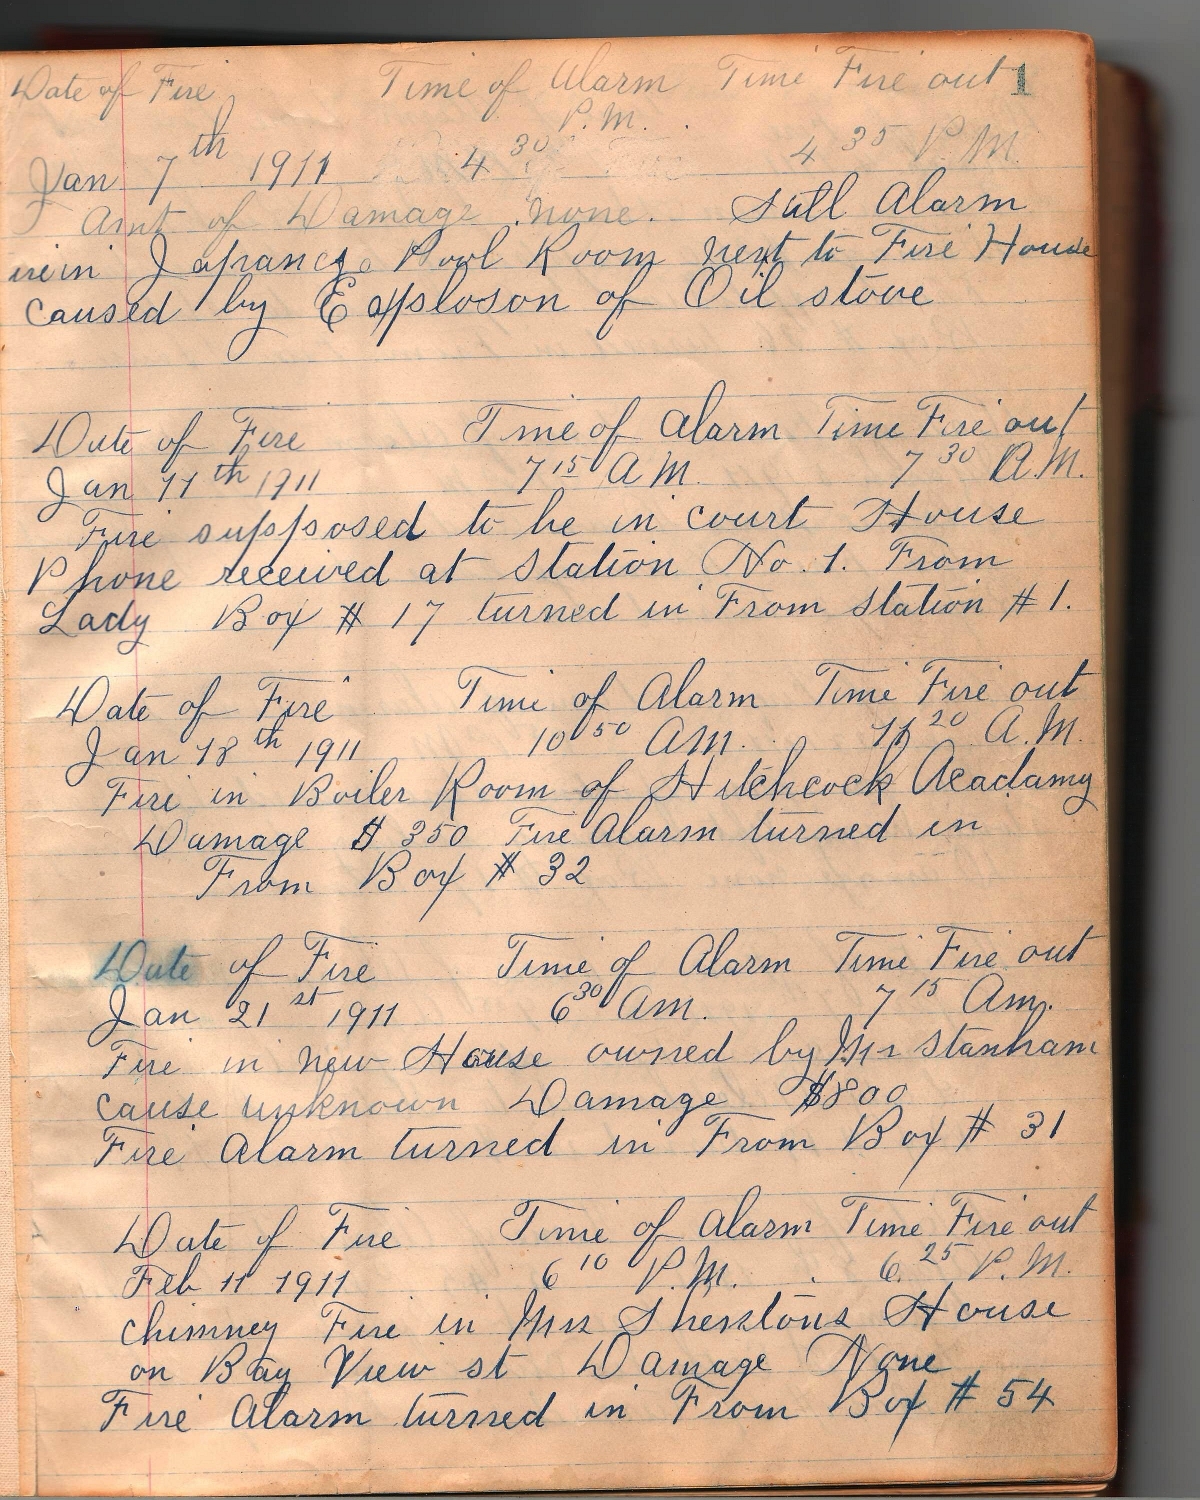 Date of Fire Time of Alarm Time Fire out 1
P.M.
Jan 7th 1911 4 30 4 35 P.M.
Amt of Damage none. Still Alarm
in Japanese Pool Room next to Fire House
caused by Exploson of Oil stove
Date of Fire Time of Alarm Time Fire out
Jan 11th 1911 7 15 A M. 7 30 A.M.
Fire supposed to be in court House
Phone received at Station No. 1. From
Lady Box # 17 turned in From Station # 1.
Date of Fire Time of Alarm Time Fire out
Jan 18th 1911 10 50 AM. 11 20 A.M.
Fire in Boiler Room of Hitchcock Acadamy
Damage $ 350 Fire Alarm turned in
From Box # 32
Date of Fire Time of Alarm Time Fire out
Jan 21st 1911 6 30 Am. 7 15 Am.
Fire in new House owned by Mr Stanham
cause unknown Damage $800
Fire Alarm turned in From Box # 31
Date of Fire Time of Alarm Time Fire out
Feb 11 1911 6 10 P.M. 6 25 P.M.
chimney Fire in Mrs House
on Bay View st Damage None
Fire Alarm turned in From Box # 54